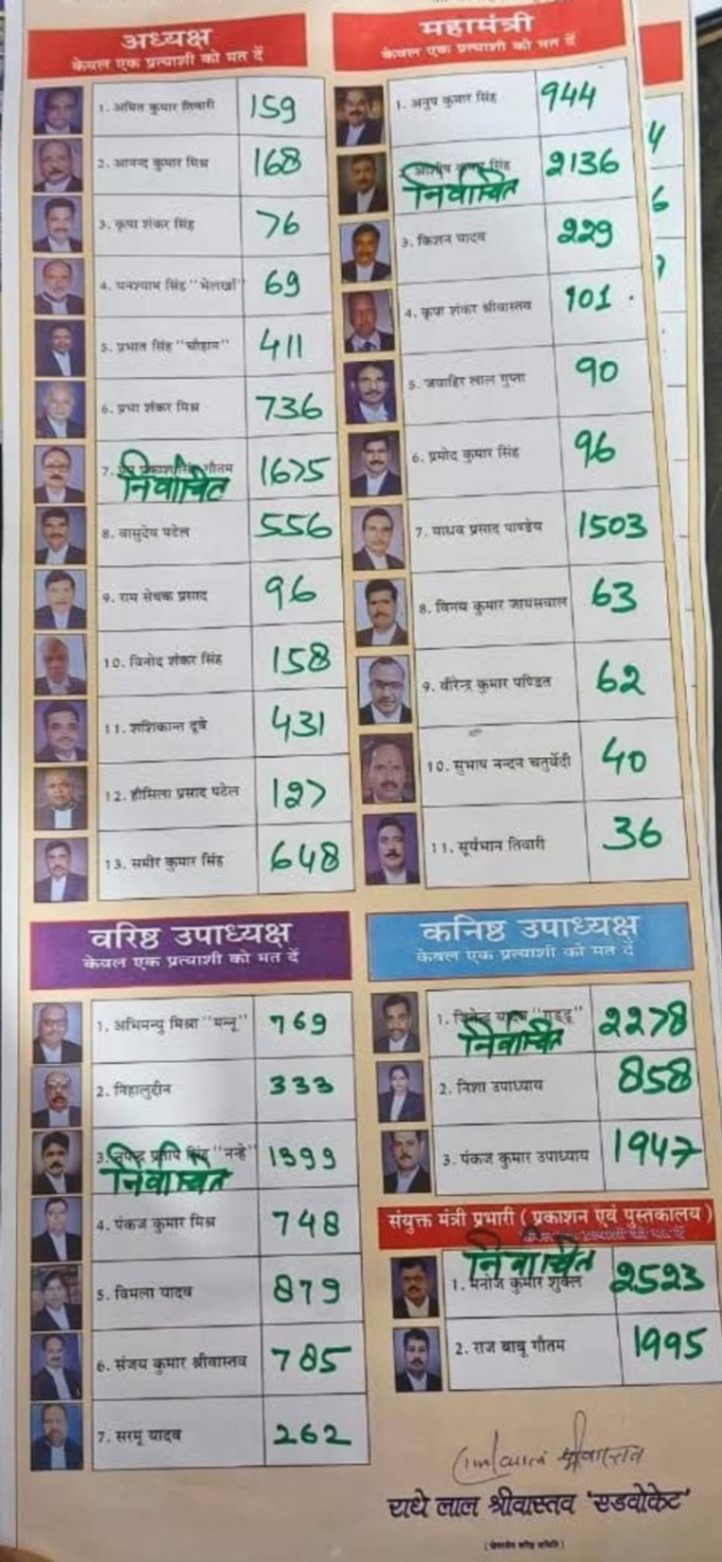 अध्यक्ष
केवल एक प्रत्याशी को मत दें
1. अमित कुमार तिवारी 159
2. आनन्द कुमार मिश्र 168
3. कृपा शंकर सिंह 76
4. घनश्याम सिंह "भेलखॉ" 69
5. प्रभात सिंह "चौहान" 411
6. प्रभा शंकर मिश्र 736
7. प्रेम प्रकाश सिंह गौतम 1675
निर्वाचित
8. वासुदेव पटेल 556
9. राम सेवक प्रसाद 96
10. विनोद शंकर सिंह 158
11. शशिकान्त दूबे 431
12. हौसिला प्रसाद पटेल 127
13. समीर कुमार सिंह 648
महामंत्री
केवल एक प्रत्याशी को मत दें
1. अनुप कुमार सिंह 944
2. आशीष कुमार सिंह 2136
निर्वाचित
3. किशन यादव 229
4. कृपा शंकर श्रीवास्तव 101
5. जवाहिर लाल गुप्ता 90
6. प्रमोद कुमार सिंह 96
7. माधव प्रसाद पाण्डेय 1503
8. विनय कुमार जायसवाल 63
9. वीरेन्द्र कुमार पण्डित 62
10. सुभाष नन्दन चतुर्वेदी 40
11. सूर्यभान तिवारी 36
वरिष्ठ उपाध्यक्ष
केवल एक प्रत्याशी को मत दें
1. अभिमन्यु मिश्रा "मन्नू" 769
2. निहालुद्दीन 333
3. नृपेन्द्र प्रताप सिंह "नन्हे" 1399
निर्वाचित
4. पंकज कुमार मिश्र 748
5. विमला यादव 879
6. संजय कुमार श्रीवास्तव 785
7. सरमू यादव 262
कनिष्ठ उपाध्यक्ष
केवल एक प्रत्याशी को मत दें
1. यादव "गुड्डू" 2278
निर्वाचित
2. निशा उपाध्याय 858
3. पंकज कुमार उपाध्याय 1947
संयुक्त मंत्री प्रभारी ( प्रकाशन एवं पुस्तकालय )
निर्वाचित
1. मनोज कुमार शुक्ल 2523
2. राज बाबू गौतम 1995
श्रीवास्तव
राधे लाल श्रीवास्तव 'एडवोकेट'